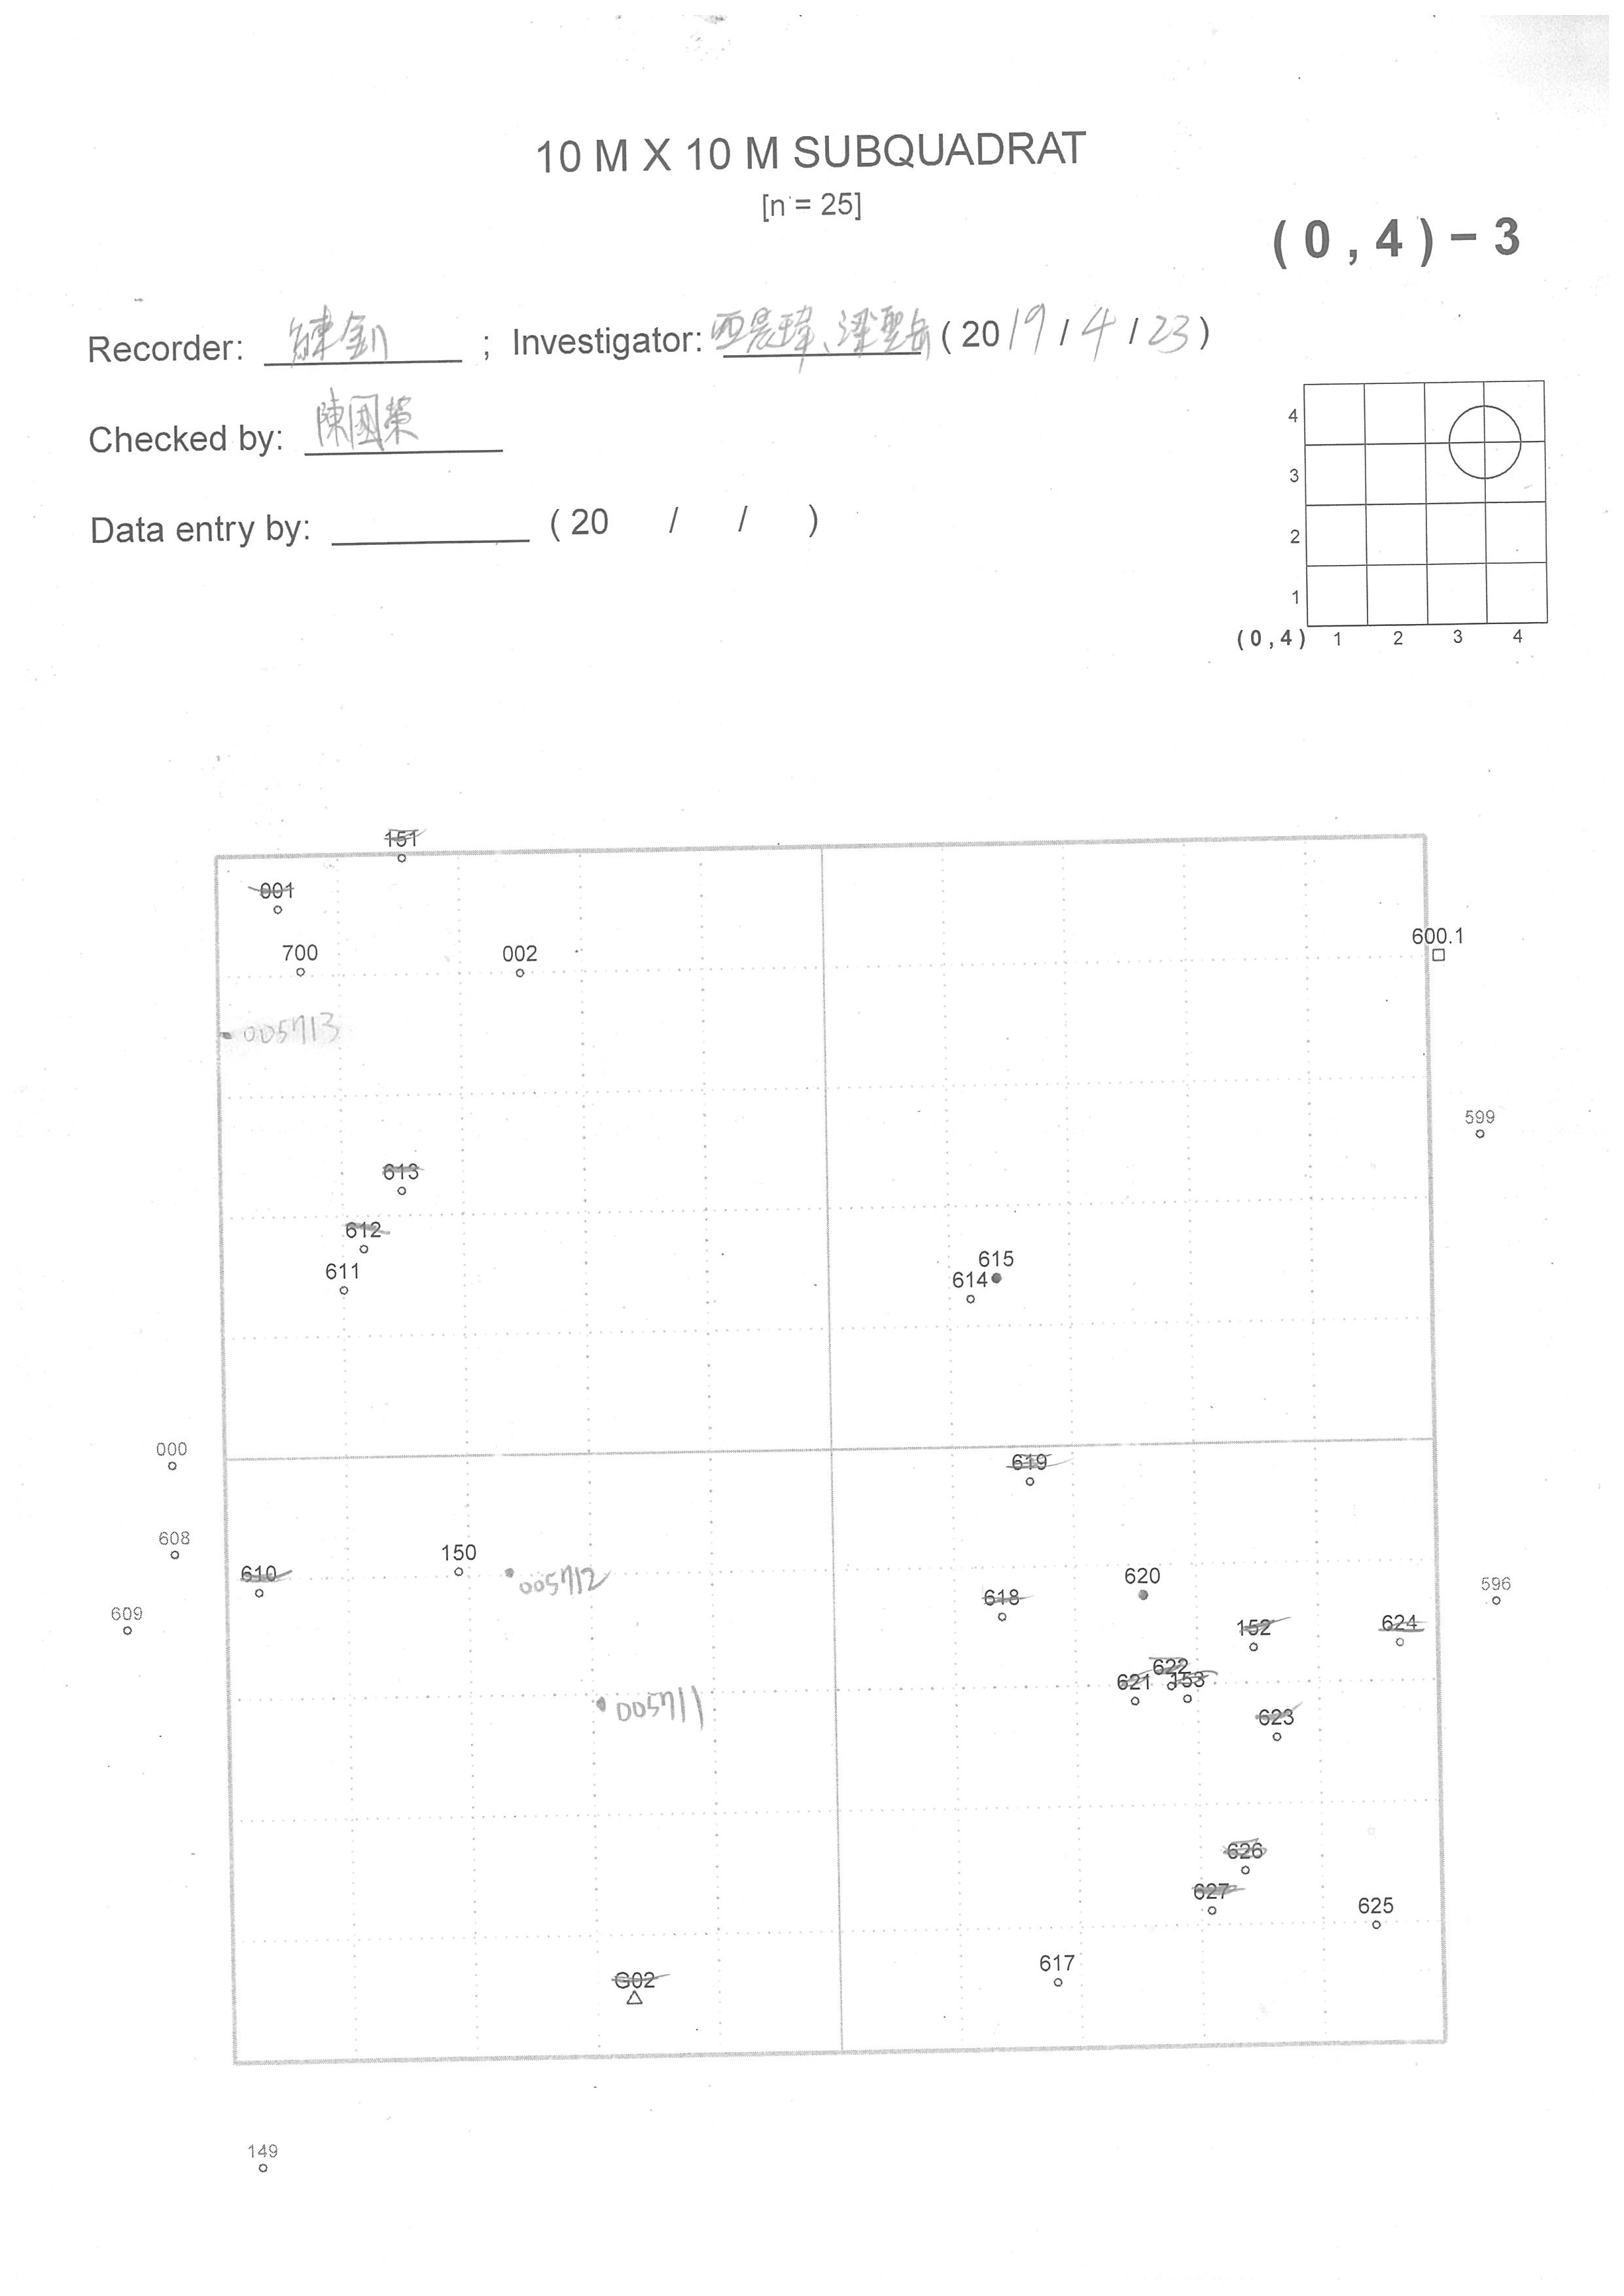 10 M X 10 M SUBQUADRAT
[n = 25]
(0,4)-3
Recorder: ; Investigator: (2019/4/23)
Checked by: 陳國榮
Data entry by: (20 / / )
4
3
2
1
(0,4) 1 2 3 4
151
001
700 002
600.1
005713
599
613
612
615
611 614
000
619
608
150
610 005712 620
596
618
609
624
152
622
621 153
005711
623
626
627
625
617
G02
149